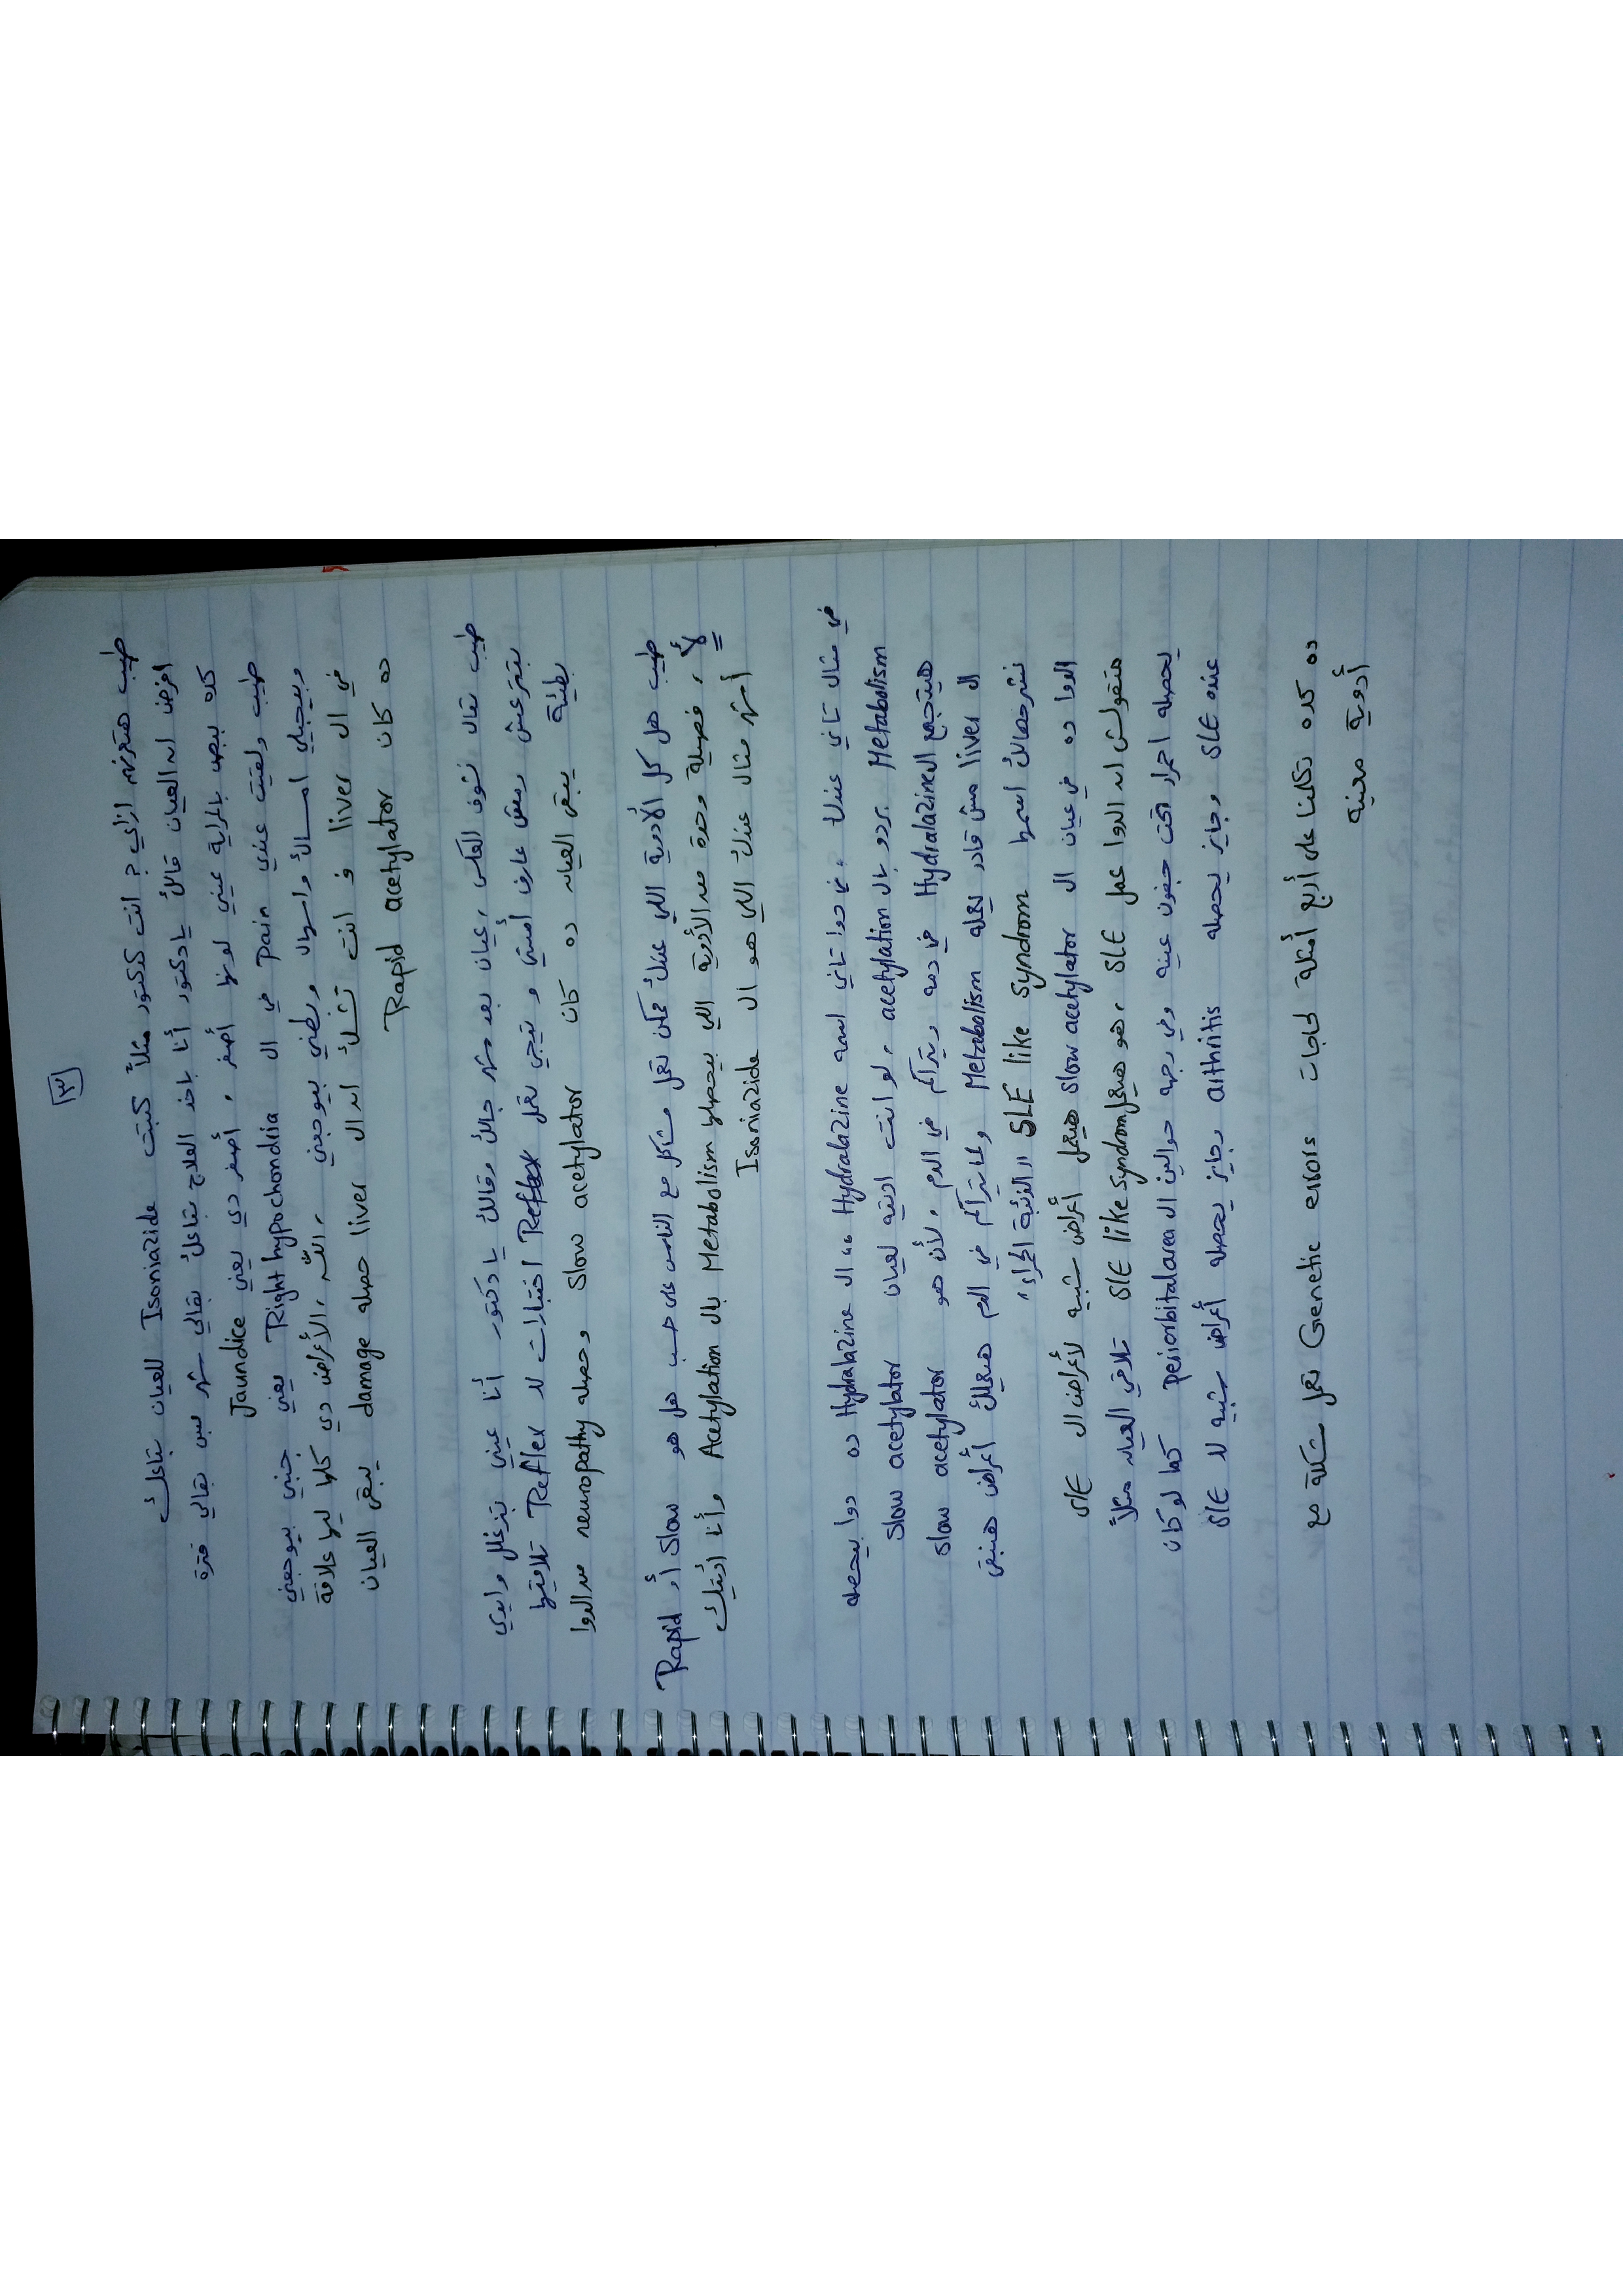 [٣]
طيب هتعرفهم ازاي ؟ انت كدكتور مثلاً كتبت Isoniazide للعيان بتاعك
افرض ان العيان قالك يا دكتور أنا باخد العلاج بتاعك بقالي شهر بس بقالي فترة
كده ببص بالمراية عيني لونها أصفر ، أصفر دي يعني Jaundice
طيب ولقيت عندي Pain في ال Right hypochondria يعني جنبي بيوجعني
وبيجيلي امساك واسهال وبطني بيوجعني ، الله ، الأعراض دي كلها ليها علاقة
في ال liver و انت تشك ان ال liver حصله damage يبقى العيان
ده كان Rapid acetylator
طيب تعال نشوف العكس ، عيان بعد شهر جالك وقالك يا دكتور أنا عيني بتزغلل وايدي
بتترعش ومش عارف أمشي و تيجي تعمل اختبارات لل Reflex تلاقيها
بطيئة يبقى العيان ده كان Slow acetylator وحصله neuropathy من الدوا
طيب هل كل الأدوية اللي عندك ممكن تعمل مشاكل مع الناس على حسب هل هو Slow أو Rapid
لأ ، فصيلة وحدة من الأدوية اللي بيحصلها Metabolism بال Acetylation وأنا أديتك
أشهر مثال عندك اللي هو ال Isoniazide
في مثال تاني عندك ، في دوا تاني اسمه Hydralazine ،، ال Hydralazine ده دوا بيحصله
Metabolism بردو بال acetylation ، لو انت اديته لعيان Slow acetylator
هيتجمع ال Hydralazine في دمه ويتراكم في الدم ، لأن هو slow acetylator
ال liver مش قادر يعمله Metabolism ولما يتراكم في الدم هيعملك أعراض هنبقى
نشرحهالك اسمها SLE like syndrom "الذئبة الحمراء"
الدوا ده في عيان ال Slow acetylator هيعمل أعراض شبيه لأعراض ال SLE
متقولش ان الدوا عمل SLE ، هو هيعمل SLE like syndrom تلاقي العيان مثلاً
يحصله احمرار تحت جفون عينه وفي وجهه حوالين ال periorbital area كما لو كان
عنده SLE وجايز يحصله arthritis وجايز يحصله أعراض شبيه لل SLE
ده كده تكلمنا على أربع أمثلة لحاجات Genetic errors تعمل مشكلة مع
أدوية معينه